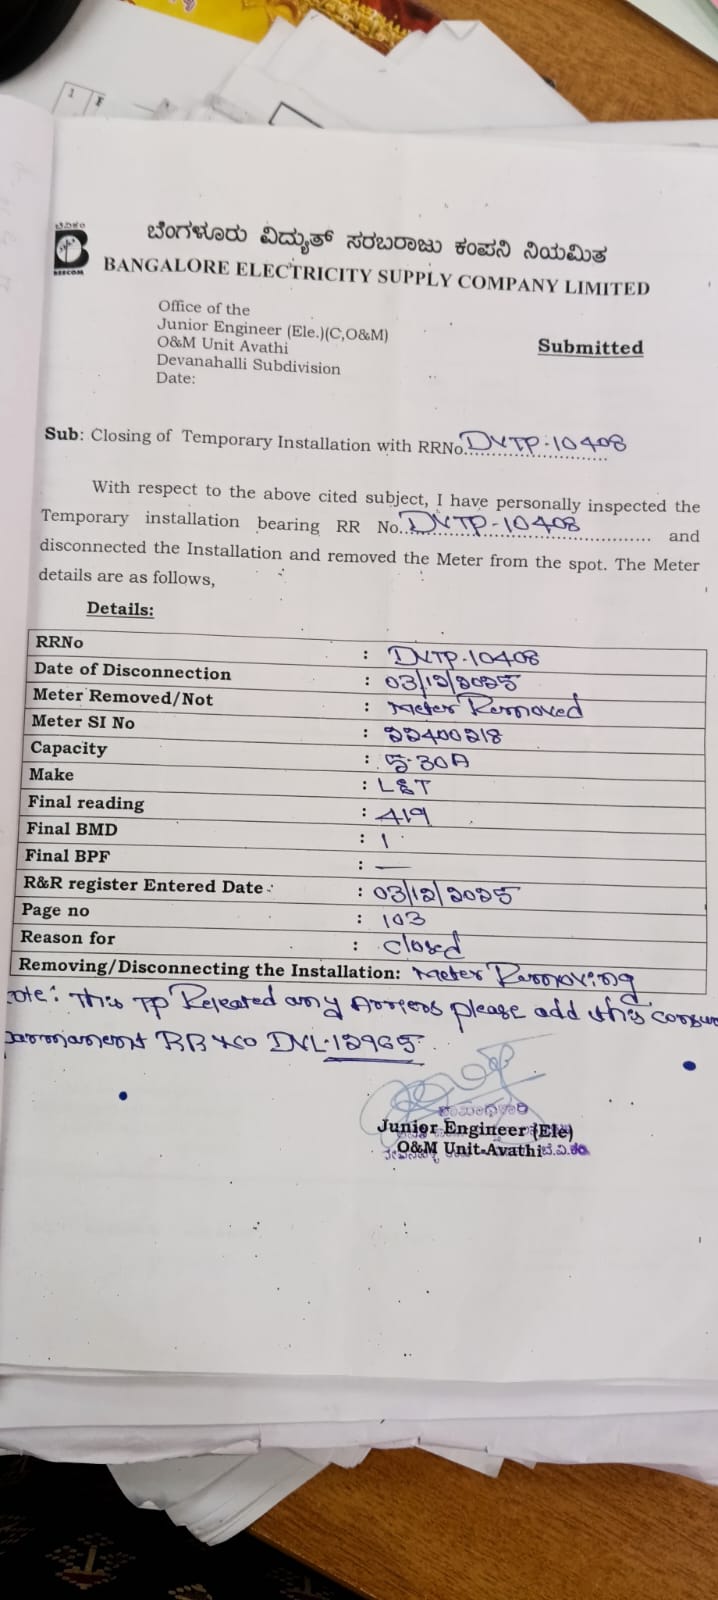 ಬೆವಿಕಂ
BESCOM
ಬೆಂಗಳೂರು ವಿದ್ಯುತ್ ಸರಬರಾಜು ಕಂಪನಿ ನಿಯಮಿತ
BANGALORE ELECTRICITY SUPPLY COMPANY LIMITED
Office of the
Junior Engineer (Ele.)(C,O&M)
O&M Unit Avathi
Devanahalli Subdivision
Date:
Submitted
Sub: Closing of Temporary Installation with RRNo. DVTP-10408
With respect to the above cited subject, I have personally inspected the
Temporary installation bearing RR No. DVTP-10408 and
disconnected the Installation and removed the Meter from the spot. The Meter
details are as follows,
Details:
RRNo : DVTP-10408
Date of Disconnection : 03/12/2025
Meter Removed/Not : Meter Removed
Meter SI No : 22400218
Capacity : 5-30A
Make : L&T
Final reading : 419
Final BMD : 1
Final BPF : —
R&R register Entered Date : 03/12/2025
Page no : 103
Reason for : Closed
Removing/Disconnecting the Installation: Meter Removing
ote: This TP Releated any Arrers please add this
RR No DVL-12965
Junior Engineer (Ele)
O&M Unit-Avathi ಬೆ.ವಿ.ಕಂ